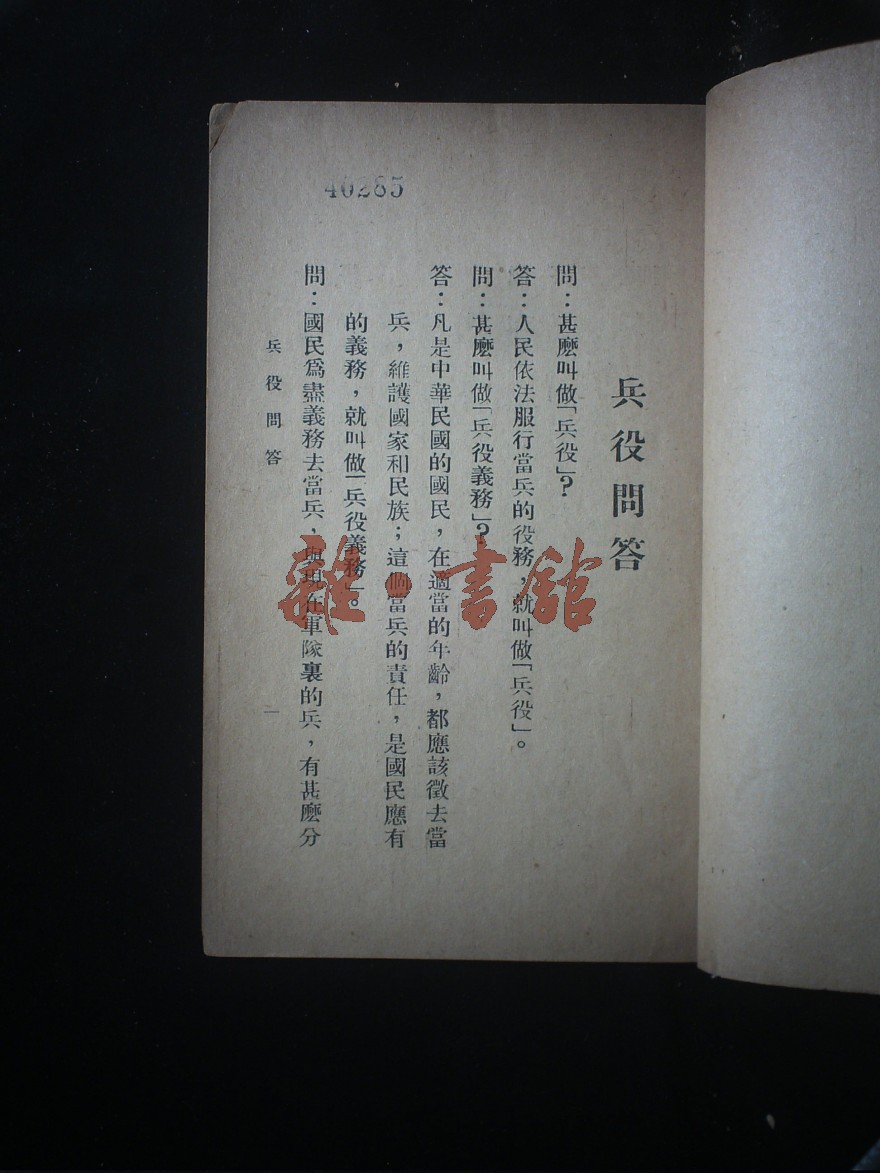 40285
兵役問答
問：甚麼叫做「兵役」？
答：人民依法服行當兵的役務，就叫做「兵役」。
問：甚麼叫做「兵役義務」？
答：凡是中華民國的國民，在適當的年齡，都應該徵去當
兵，維護國家和民族；這個當兵的責任，是國民應有
的義務，就叫做「兵役義務」。
問：國民爲盡義務去當兵，與現在軍隊裏的兵，有甚麼分
兵役問答
一
雜·書館